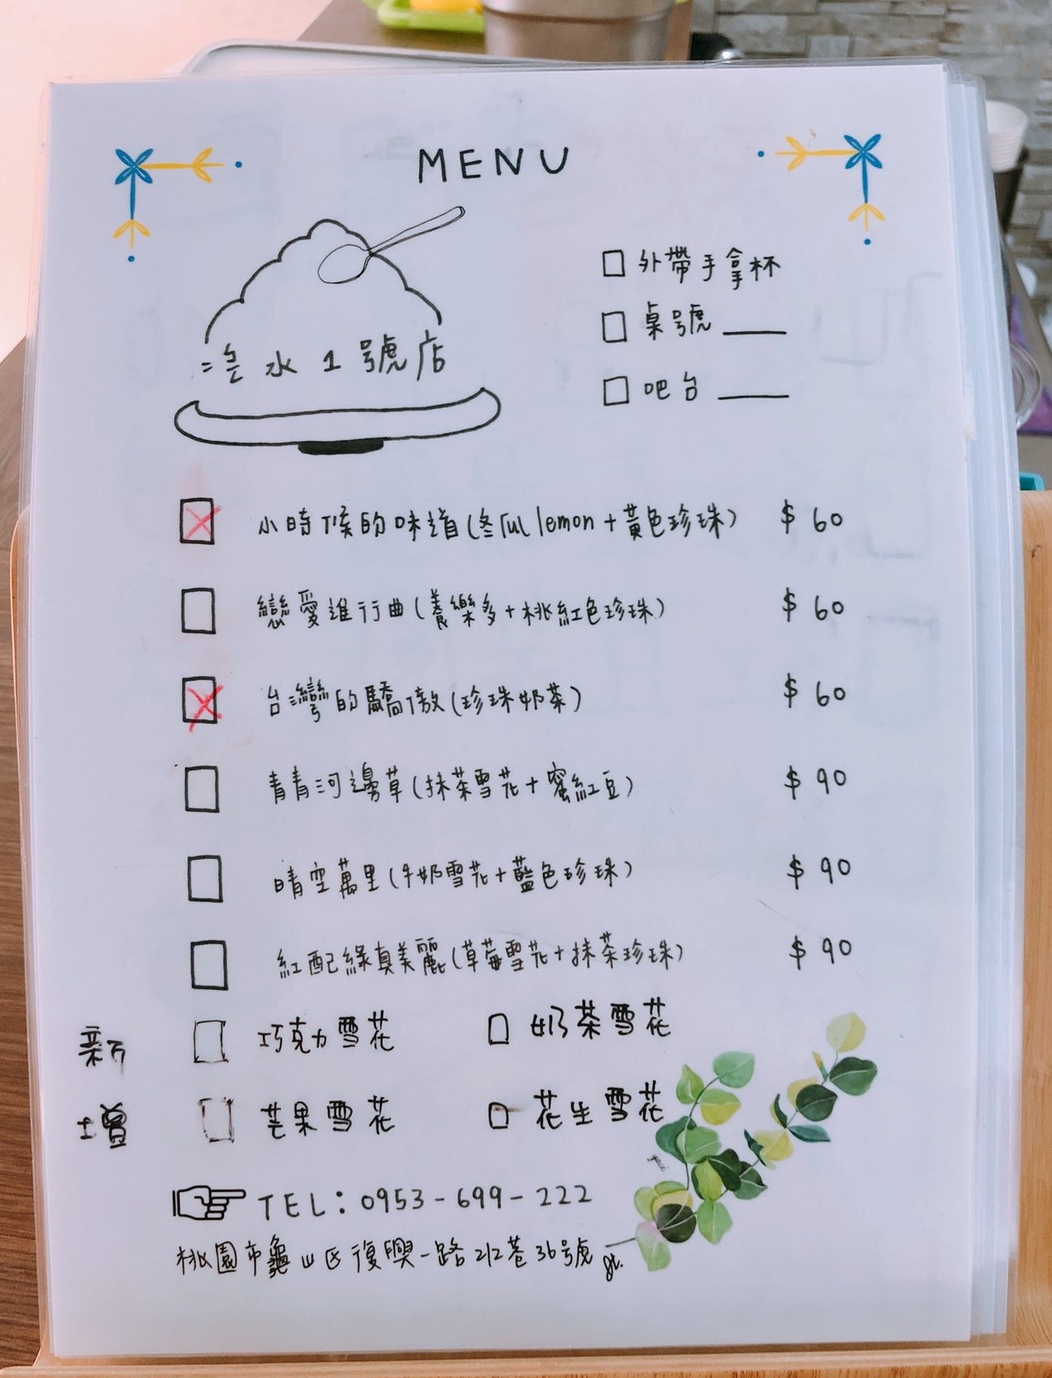 MENU
冰水1號店
外帶手拿杯
桌號
吧台
小時候的味道(冬瓜lemon+黃色珍珠) $60
戀愛進行曲(養樂多+桃紅色珍珠) $60
台灣的驕傲(珍珠奶茶) $60
青青河邊草(抹茶雪花+蜜紅豆) $90
晴空萬里(牛奶雪花+藍色珍珠) $90
紅配綠真美麗(草莓雪花+抹茶珍珠) $90
新增
巧克力雪花 奶茶雪花
芒果雪花 花生雪花
TEL:0953-699-222
桃園市龜山區復興一路212巷36號